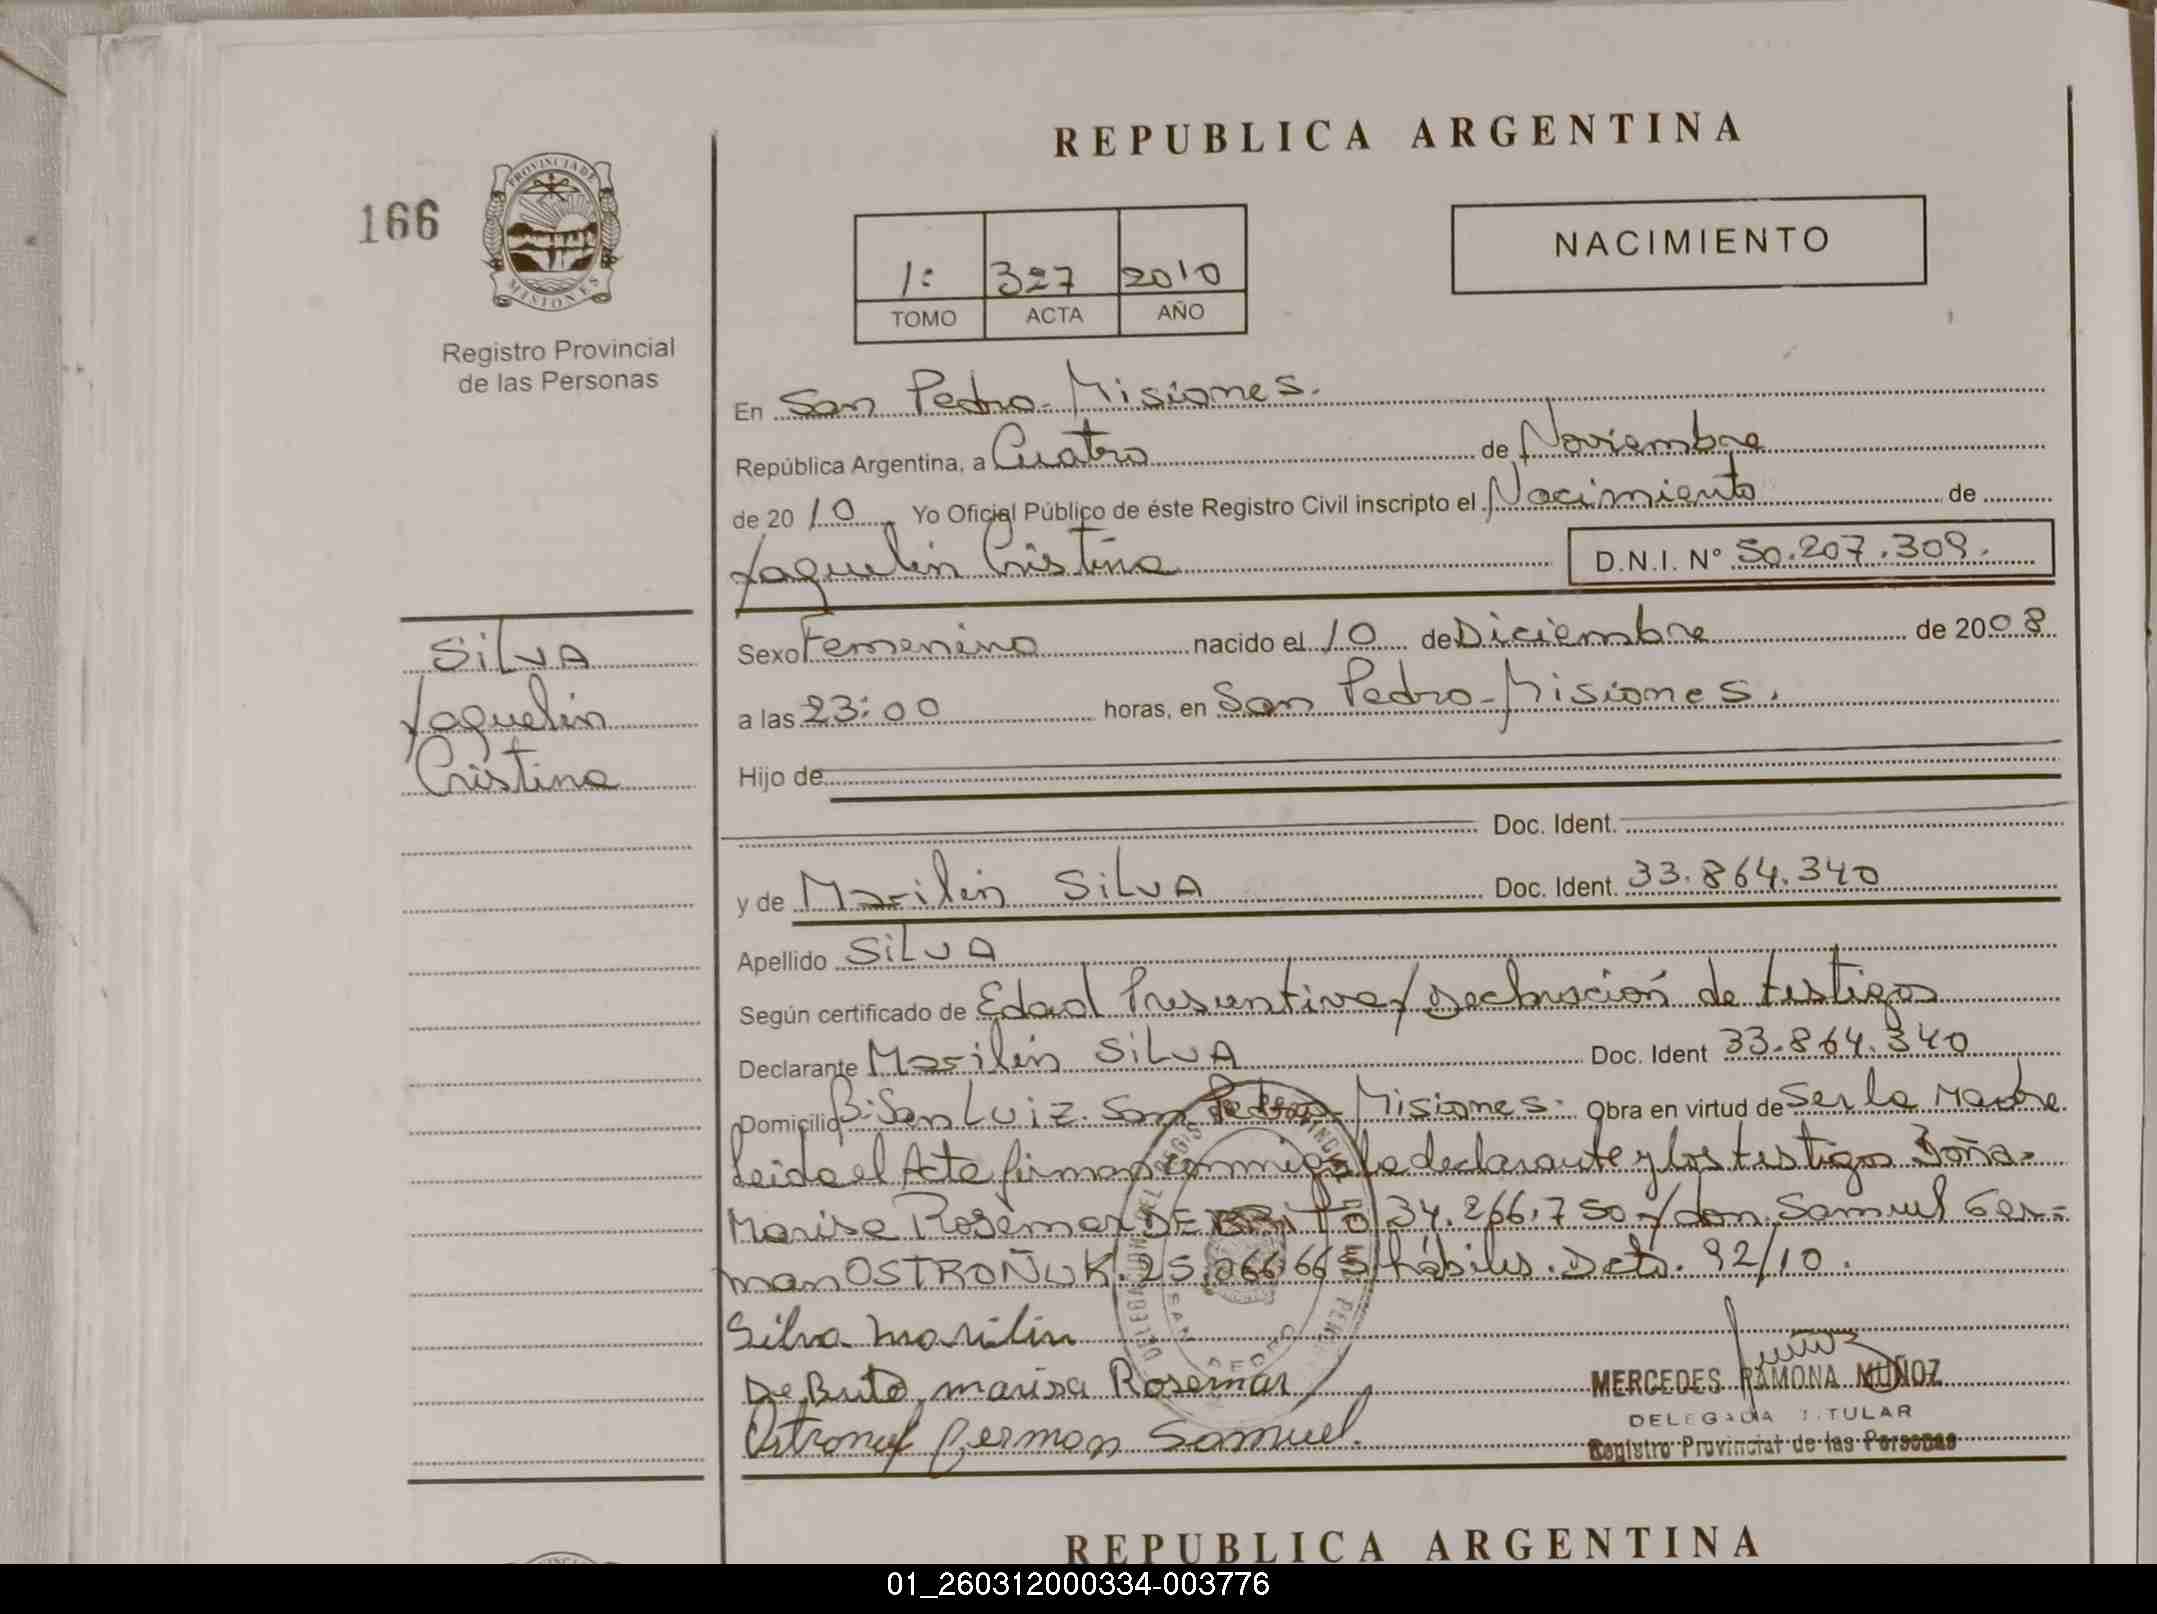 REPUBLICA ARGENTINA
166
PROVINCIA DE
MISIONES
Registro Provincial
de las Personas
NACIMIENTO
1: 327 2010
TOMO ACTA AÑO
En San Pedro-Misiones.
República Argentina, a Cuatro de Noviembre
de 2010 Yo Oficial Público de éste Registro Civil inscripto el Nacimiento de
Yaquelin Cristina D.N.I. Nº 50.207.309.
SILVA
Yaquelin
Cristina
Sexo Femenino nacido el 10 de Diciembre de 2008
a las 23:00 horas, en San Pedro-Misiones.
Hijo de
Doc. Ident.
y de Marilin SILVA Doc. Ident. 33.864.340
Apellido SILVA
Según certificado de Edad Presuntiva y Declaración de testigos
Declarante Marilin SILVA Doc. Ident 33.864.340
Domicilio B: San Luiz. San Pedro-Misiones. Obra en virtud de Ser la Madre
Leida el Acta firman conmigo la declarante y los testigos Doña
Marisa Rosemar DE BRITO 34.266.750 y don Samuel Ger=
man OSTROÑUK. 25.066.665 hábiles. Dcto. 92/10.
Silva marilin
De Brito marisa Rosemar
German Samuel.
MERCEDES RAMONA MUÑOZ
DELEGADA TITULAR
Registro Provincial de las Personas
SAN PEDRO
REPUBLICA ARGENTINA
01_260312000334-003776